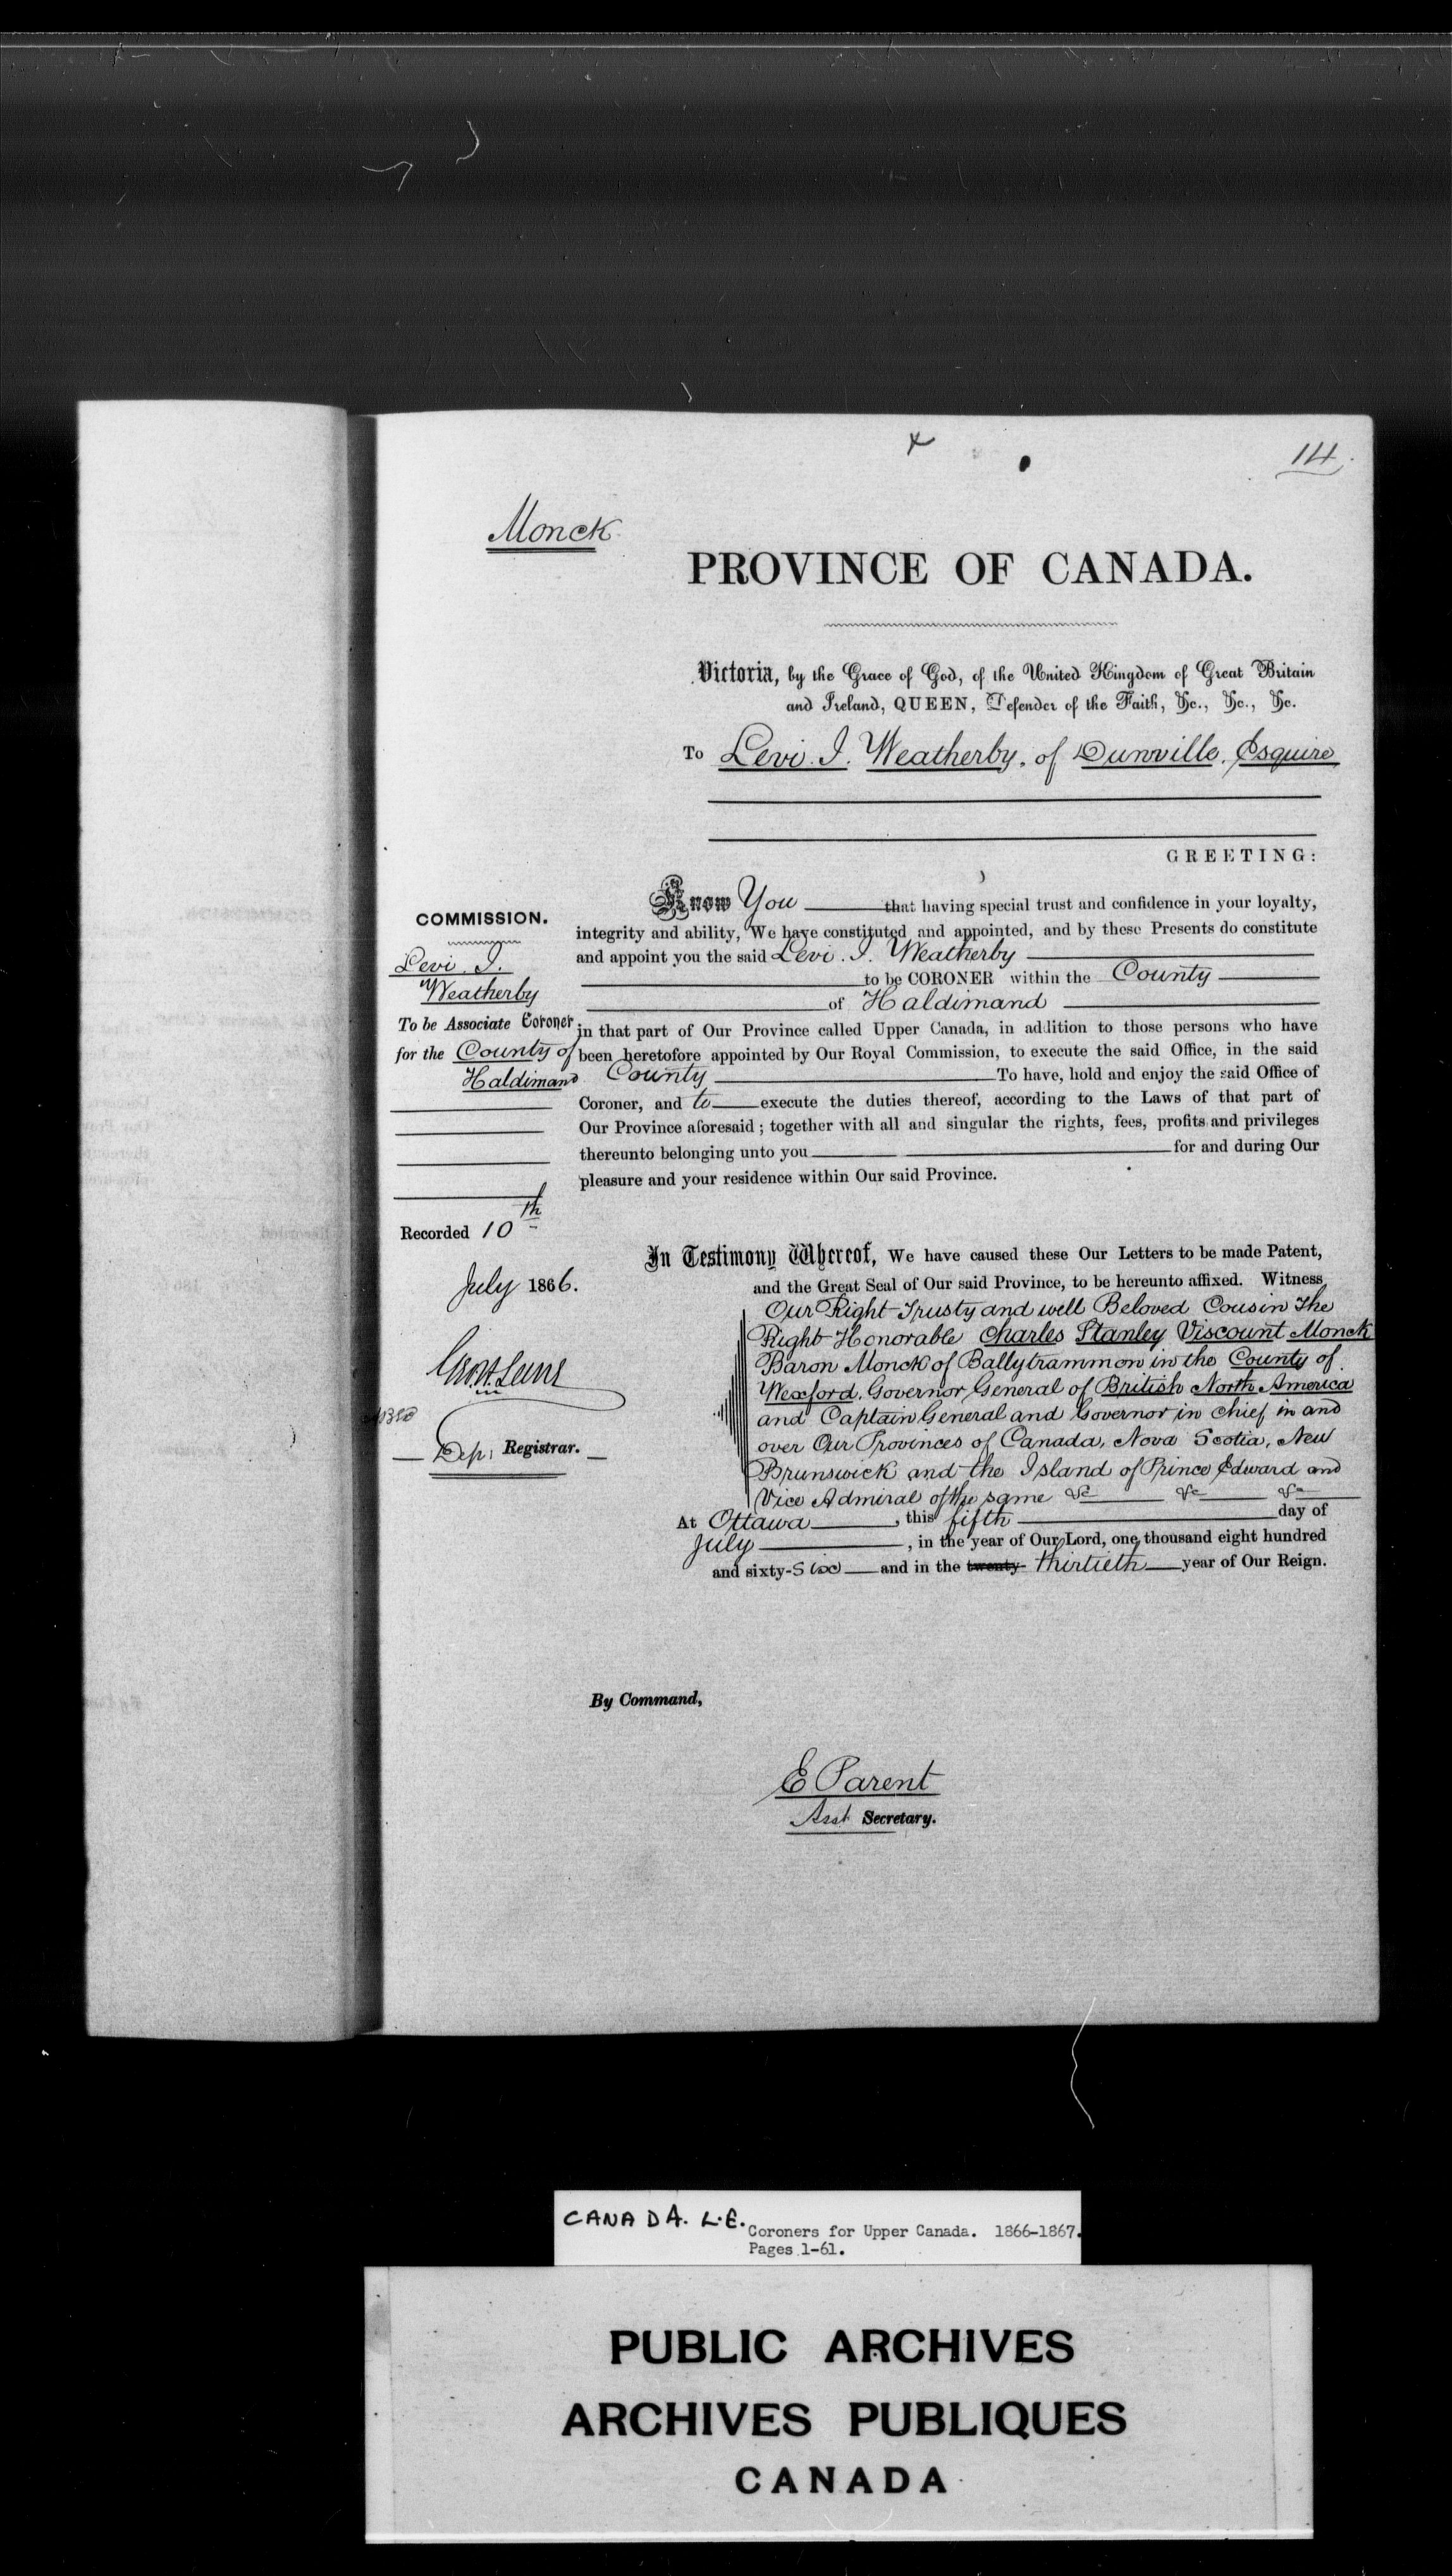 14.
Monck
PROVINCE OF CANADA.
Victoria, by the Grace of God, of the United Kingdom of Great Britain
and Ireland, QUEEN, Defender of the Faith, &c., &c., &c.
To Levi. I. Weatherby, of Dunville, Esquire
GREETING:
Know You that having special trust and confidence in your loyalty,
integrity and ability, We have constituted and appointed, and by these Presents do constitute
and appoint you the said Levi. I. Weatherby
to be CORONER within the County
of Haldimand
in that part of Our Province called Upper Canada, in addition to those persons who have
been heretofore appointed by Our Royal Commission, to execute the said Office, in the said
County To have, hold and enjoy the said Office of
Coroner, and to execute the duties thereof, according to the Laws of that part of
Our Province aforesaid; together with all and singular the rights, fees, profits and privileges
thereunto belonging unto you for and during Our
pleasure and your residence within Our said Province.
COMMISSION.
Levi. I.
Weatherby
To be Associate Coroner
for the County of
Haldimand
Recorded 10th
July 1866.
Dep. Registrar.
In Testimony Whereof, We have caused these Our Letters to be made Patent,
and the Great Seal of Our said Province, to be hereunto affixed. Witness
Our Right Trusty and well Beloved Cousin The
Right Honorable Charles Stanley Viscount Monck
Baron Monck of Ballytrammon in the County of
Wexford, Governor General of British North America
and Captain General and Governor in chief in and
over Our Provinces of Canada, Nova Scotia, New
Brunswick and the Island of Prince Edward and
Vice Admiral of the same &c &c &c
At Ottawa, this fifth day of
July, in the year of Our Lord, one thousand eight hundred
and sixty-six and in the twenty- thirtieth year of Our Reign.
By Command,
E Parent
Asst Secretary.
CANADA. L.E.
Coroners for Upper Canada. 1866-1867.
Pages 1-61.
PUBLIC ARCHIVES
ARCHIVES PUBLIQUES
CANADA